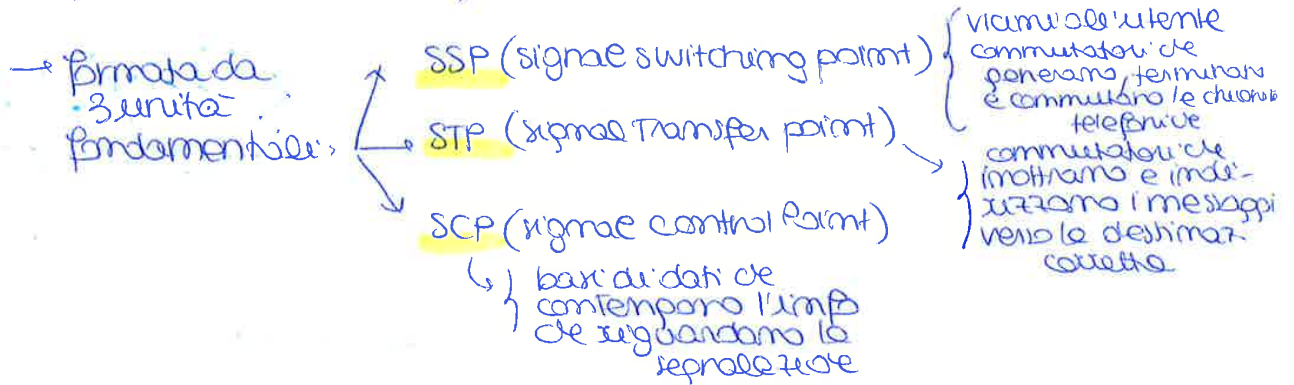 → formata da
3 unità
fondamentali:
SSP (signal switching point)
vicini all'utente
commutatori che
generano, terminano
e commutano le chiamate
telefoniche
STP (signal Transfer point)
commutatori che
inoltrano e indi-
rizzano i messaggi
verso la destinaz.
corretta
SCP (signal control Point)
basi di dati che
contengono l'info
che riguardano la
segnalazione